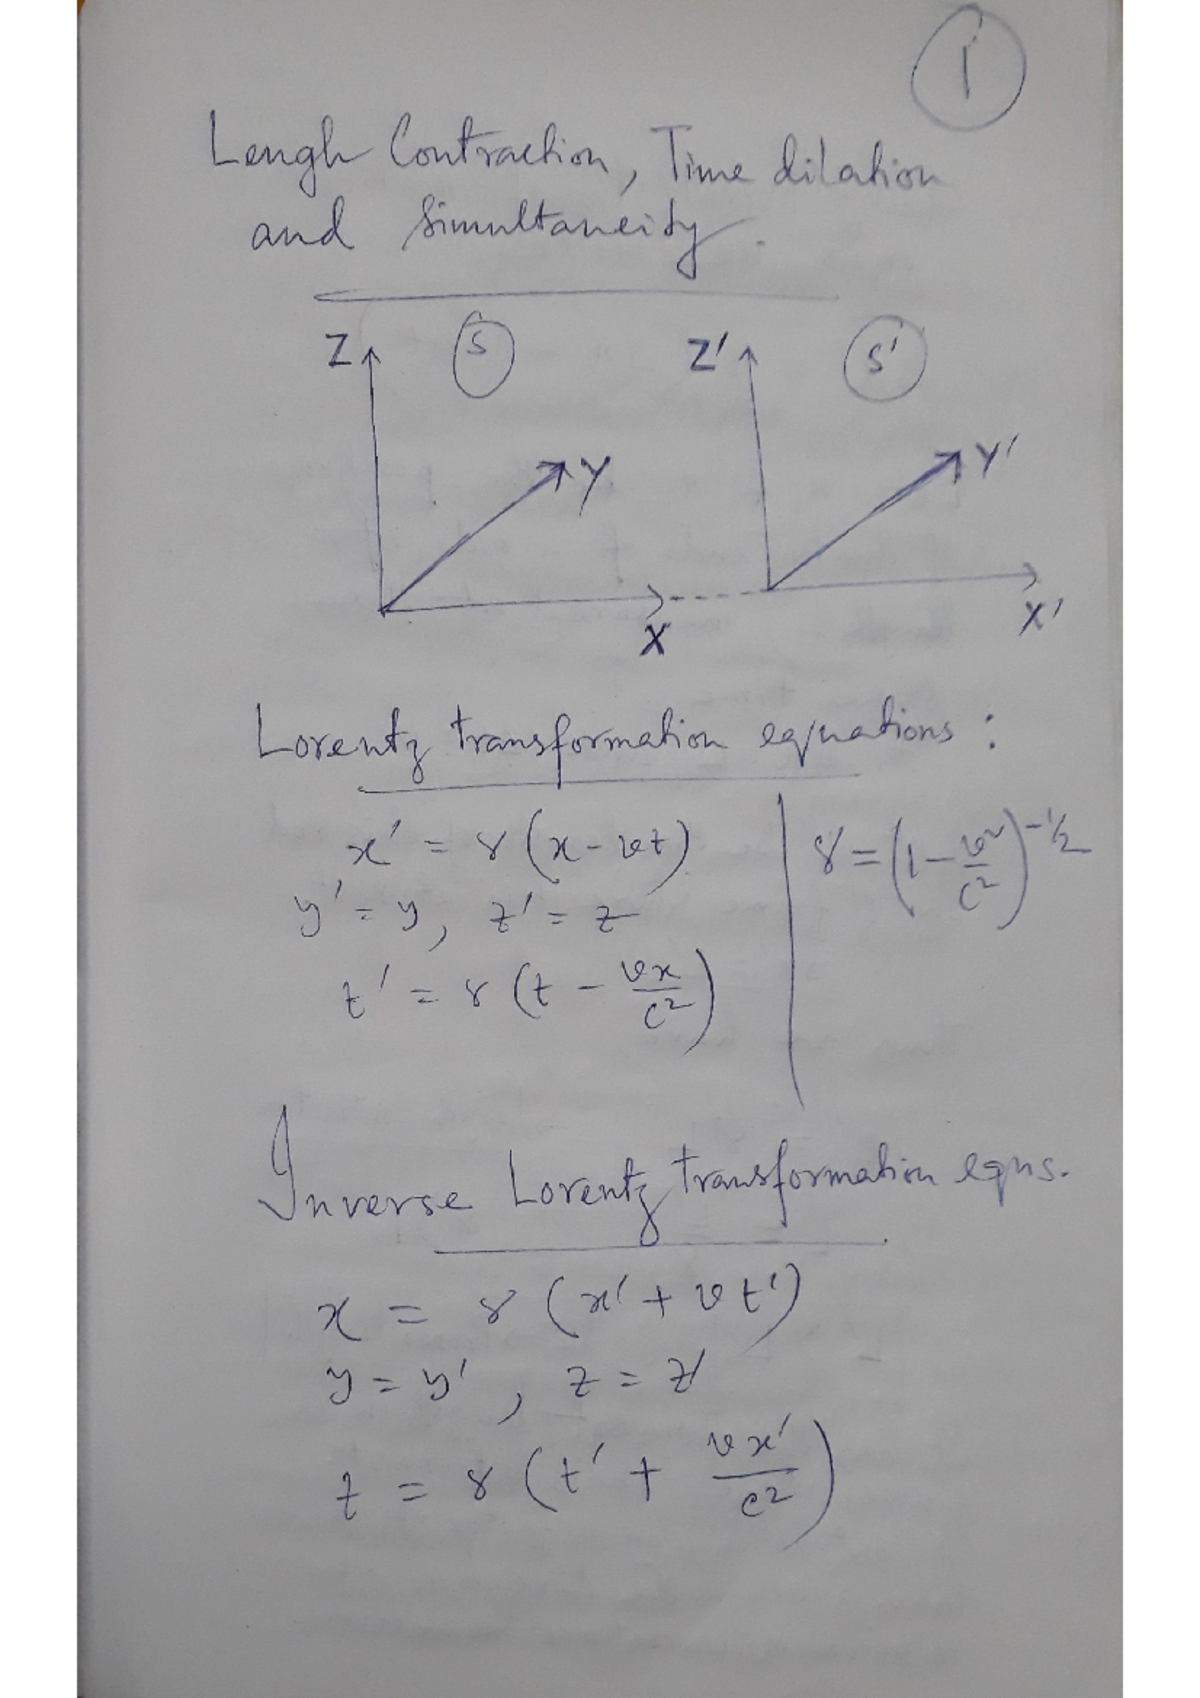 1
Lengh Contraction, Time dilation
and Simultaneity.
Z S Z' S'
Y Y'
X X'
Lorentz transformation equations:
x' = γ (x - vt)
γ = (1 - v²/c²)^(-1/2)
y' = y, z' = z
t' = γ (t - vx/c²)
Inverse Lorentz transformation eqns.
x = γ (x' + vt')
y = y', z = z'
t = γ (t' + vx'/c²)